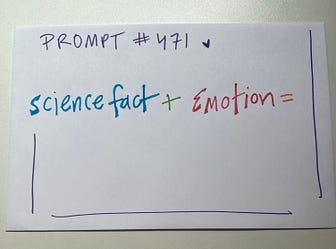 PROMPT #471
sciencefact + Emotion =